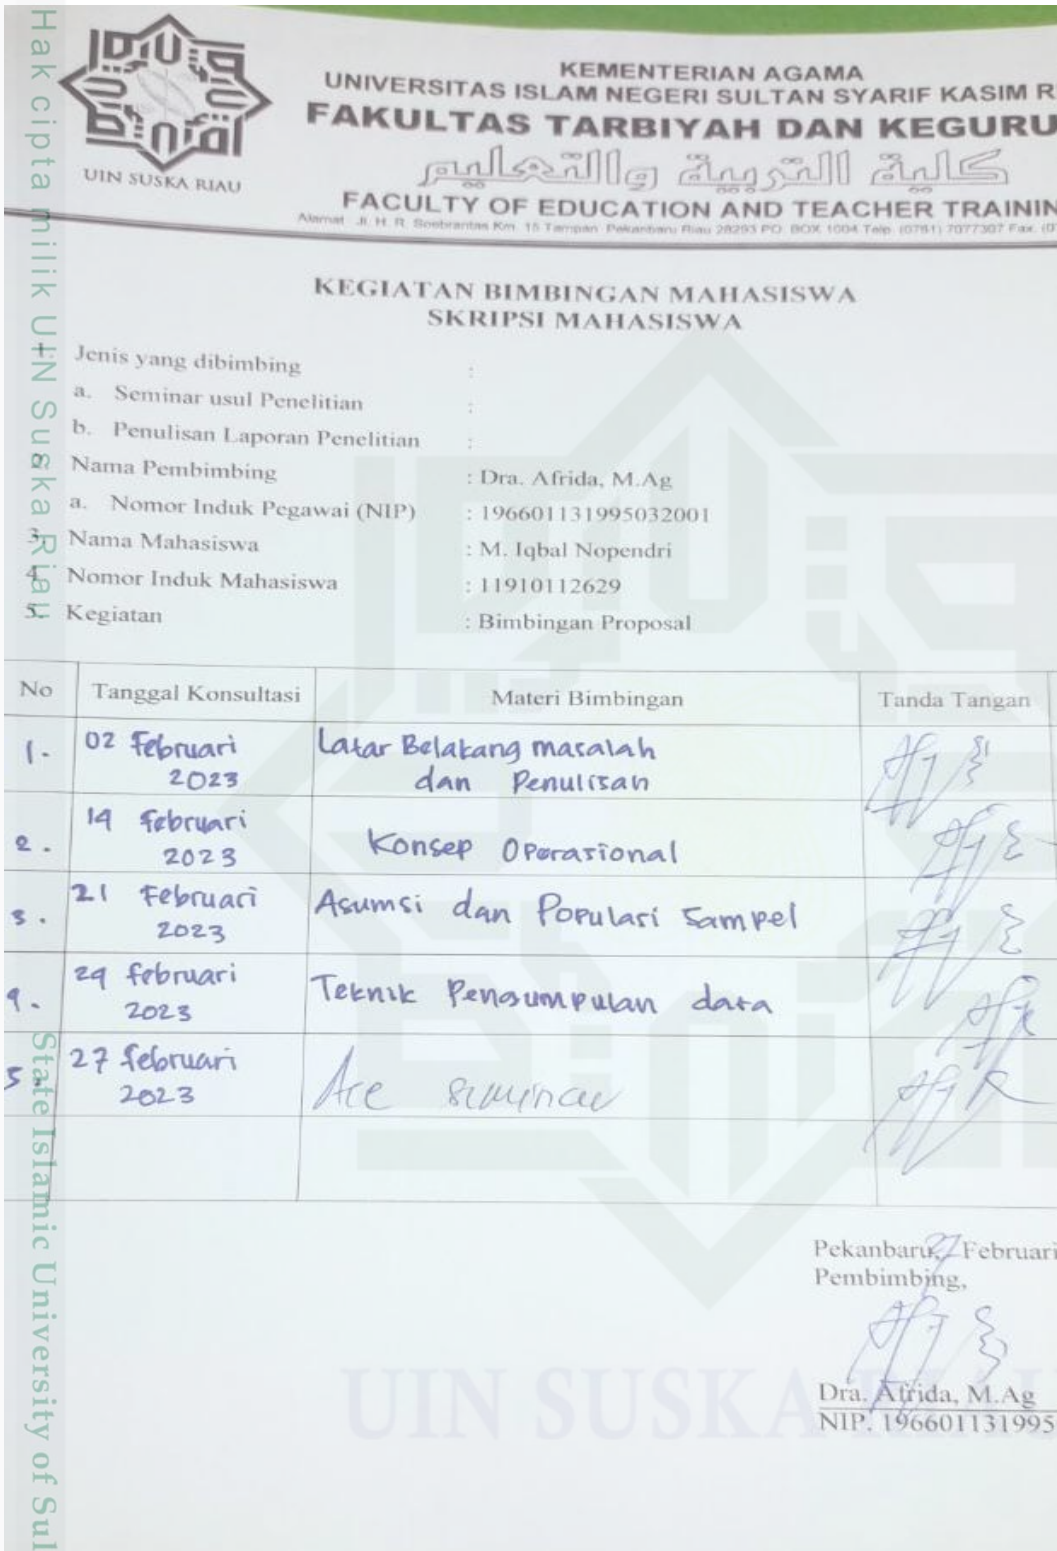 Hak cipta milik UIN Suska Riau
State Islamic University of Sul
UIN SUSKA RIAU
KEMENTERIAN AGAMA
UNIVERSITAS ISLAM NEGERI SULTAN SYARIF KASIM R
FAKULTAS TARBIYAH DAN KEGURU
كلية التربية والتعليم
FACULTY OF EDUCATION AND TEACHER TRAININ
Alamat Jl. H. R. Soebrantas Km. 15 Tampan Pekanbaru Riau 28293 PO. BOX 1004 Telp. (0761) 7077307 Fax. (07
KEGIATAN BIMBINGAN MAHASISWA
SKRIPSI MAHASISWA
Jenis yang dibimbing :
a. Seminar usul Penelitian :
b. Penulisan Laporan Penelitian :
Nama Pembimbing : Dra. Afrida, M.Ag
a. Nomor Induk Pegawai (NIP) : 196601131995032001
3. Nama Mahasiswa : M. Iqbal Nopendri
4. Nomor Induk Mahasiswa : 11910112629
5. Kegiatan : Bimbingan Proposal
No Tanggal Konsultasi Materi Bimbingan Tanda Tangan
1. 02 Februari 2023 Latar Belakang masalah
dan Penulisan
2. 14 Februari 2023 Konsep Operasional
3. 21 Februari 2023 Asumsi dan Populasi Sampel
4. 24 februari 2023 Teknik Pengumpulan data
5. 27 februari 2023 Acc seminar
Pekanbaru, 27 Februari
Pembimbing,
Dra. Afrida, M.Ag
NIP. 196601131995
UIN SUSKA